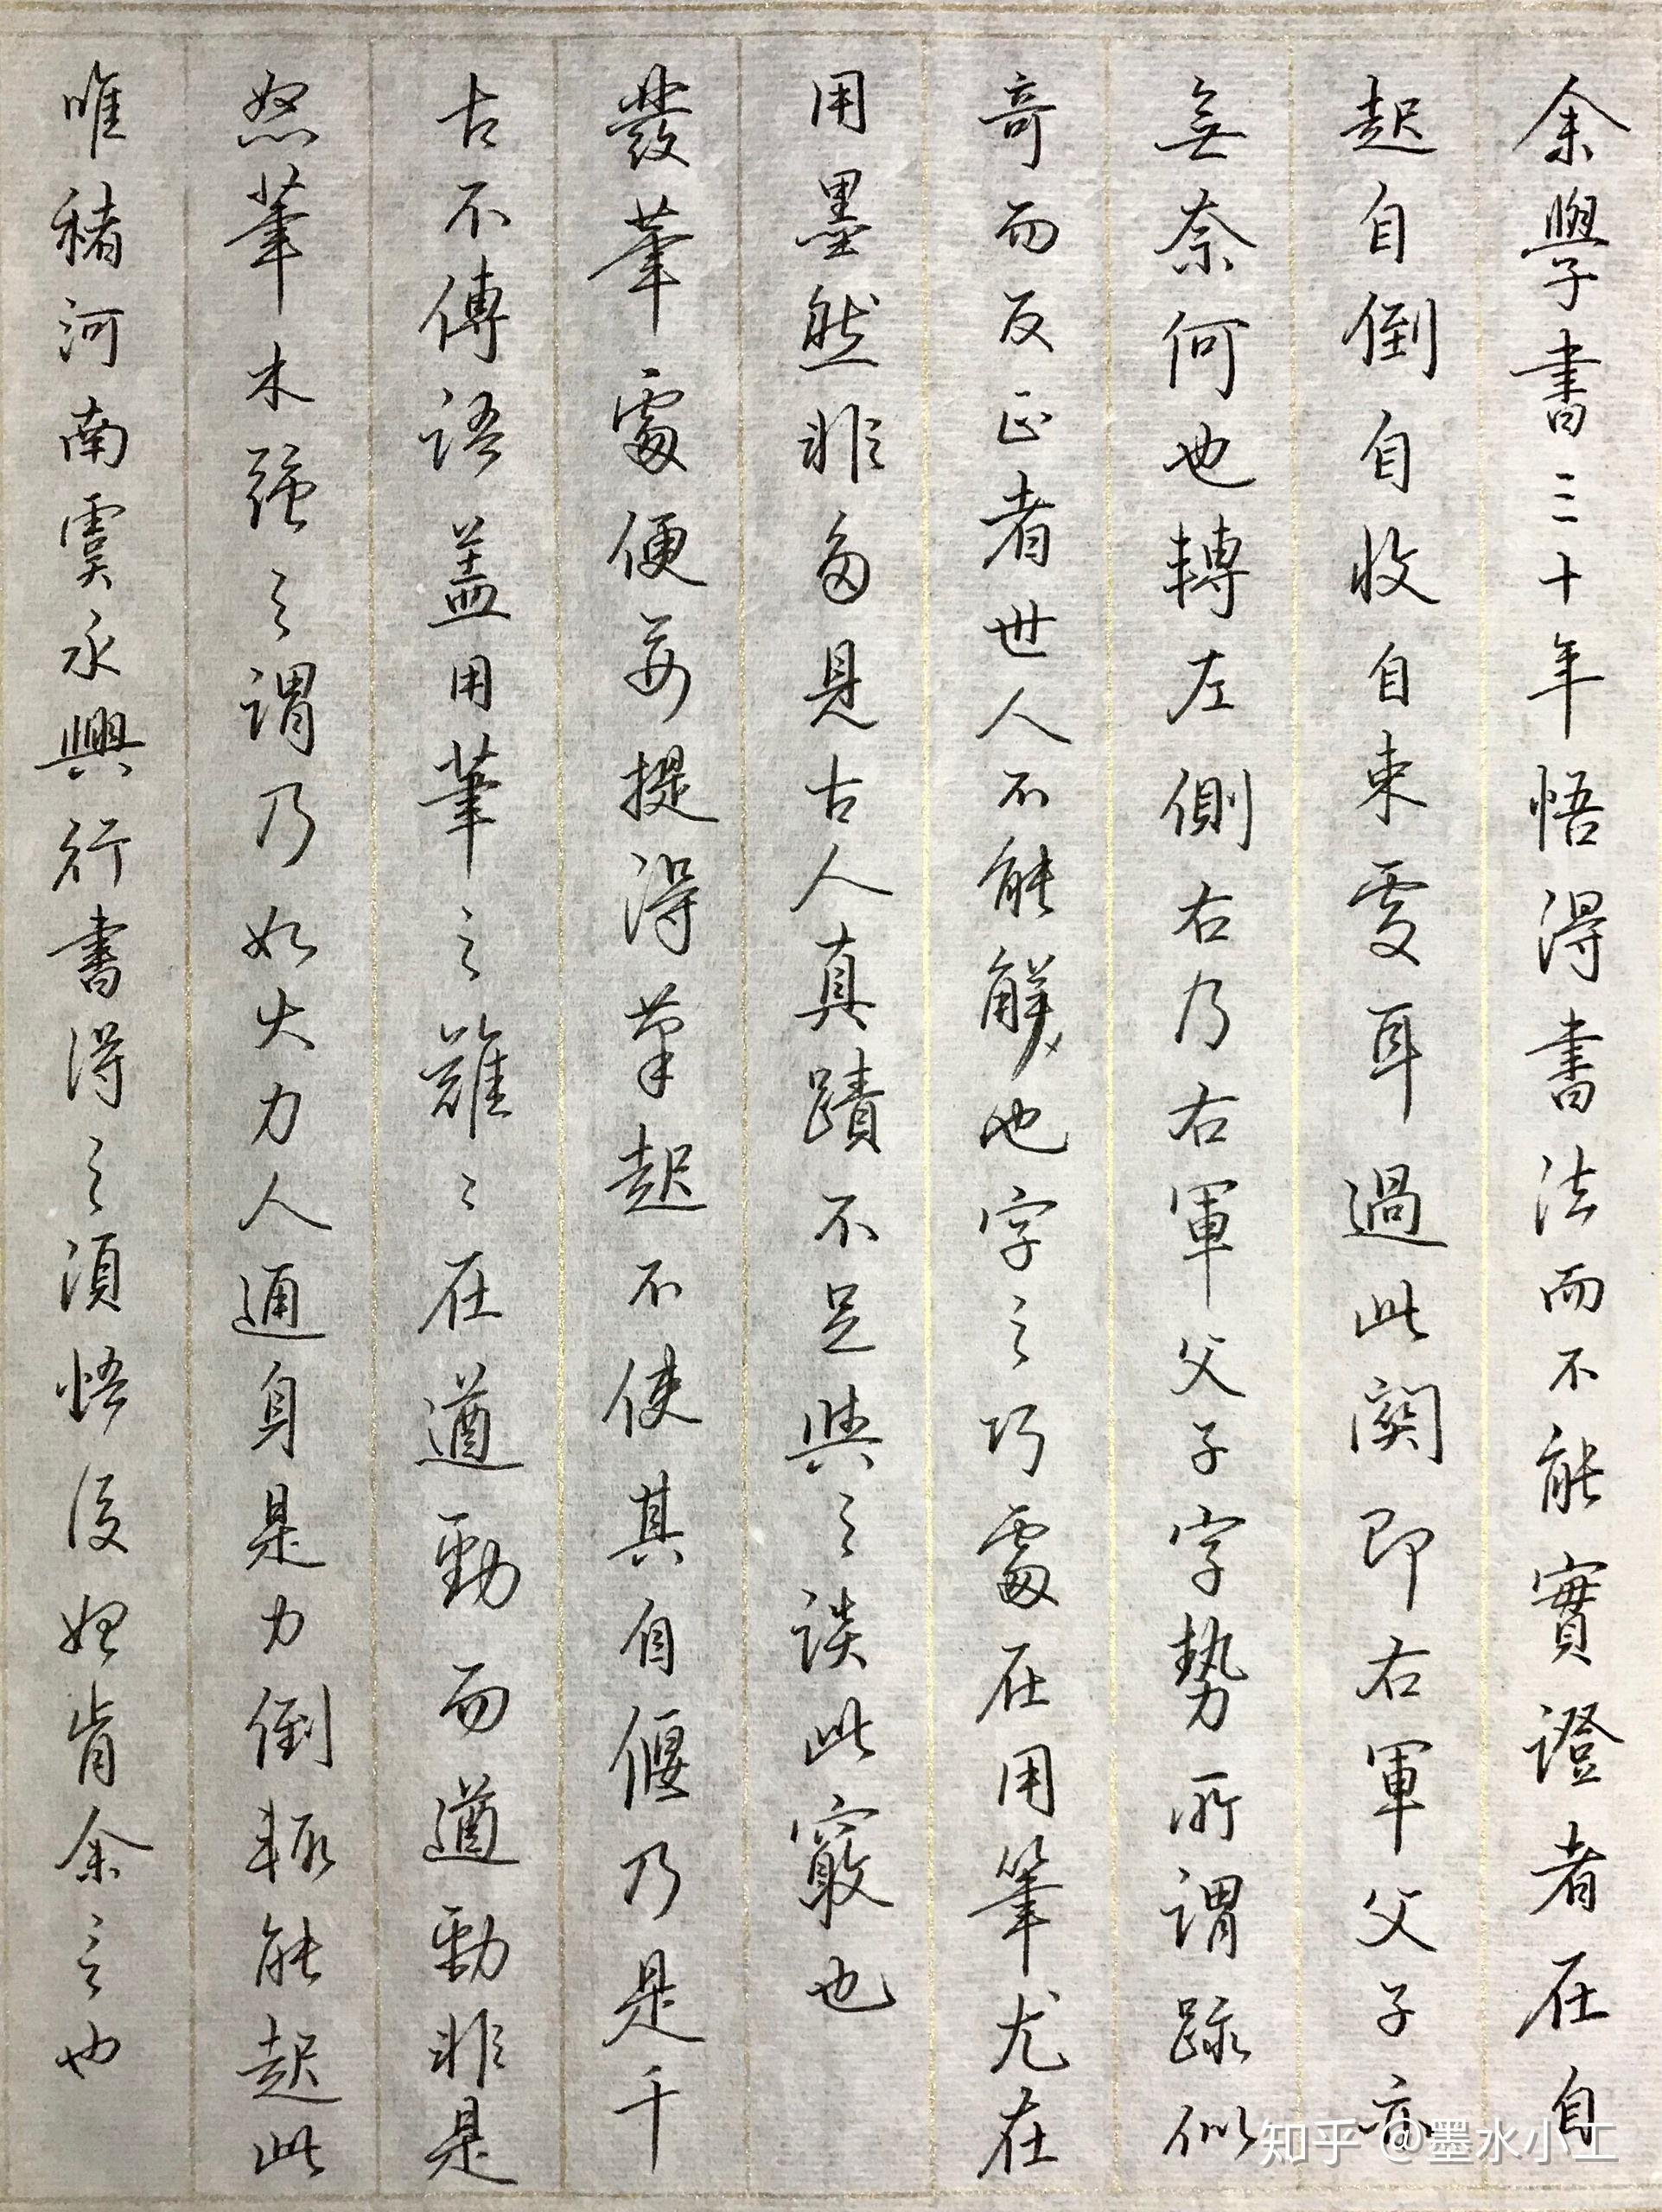 余學書三十年悟得書法而不能實證者在自
起自倒自收自束處耳過此關即右軍父子亦
無奈何也轉左側右乃右軍父子字勢所謂跡似
奇而反正者世人不能解也字之巧處在用筆尤在
用墨然非多見古人真蹟不足與之談此竅也
發筆處便要提得筆起不使其自偃乃是千
古不傳語蓋用筆之難〻在遒勁而遒勁非是
怒筆木強之謂乃如大力人通身是力倒輒能起此
唯褚河南虞永興行書得之須悟後始肯余言也
知乎 @墨水小工